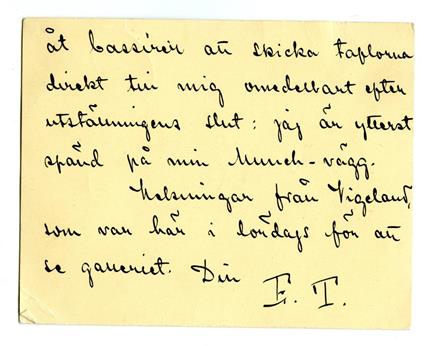 åt Cassirer att skicka taflorna
direkt till mig omedelbart efter
utställningens slut: jag är ytterst
spänd på min Munch-vägg.
Helsningar från Vigeland,
som var här i lördags för att
se galleriet. Din
E. T.